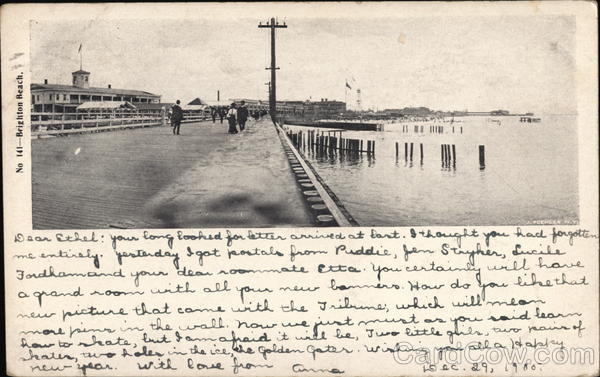 No 141—Brighton Beach.
Dear Ethel: your long looked for letter arrived at last. I thought you had forgotten
me entirely. Yesterday I got postals from Puddie, Jen Stryker, Lucile
Fordham and your dear roommate Etta. You certainly will have
a grand room with all your new banners. How do you like that
new picture that came with the Tribune; which will mean
more pins in the wall. Now we just must as you said learn
how to skate, but I am afraid it will be, Two little girls, two pairs of
skates, two holes in the ice, the Golden Gates. Wishing you all a Happy
New year. With love from Anna Dec. 29, 19
CardCow.com